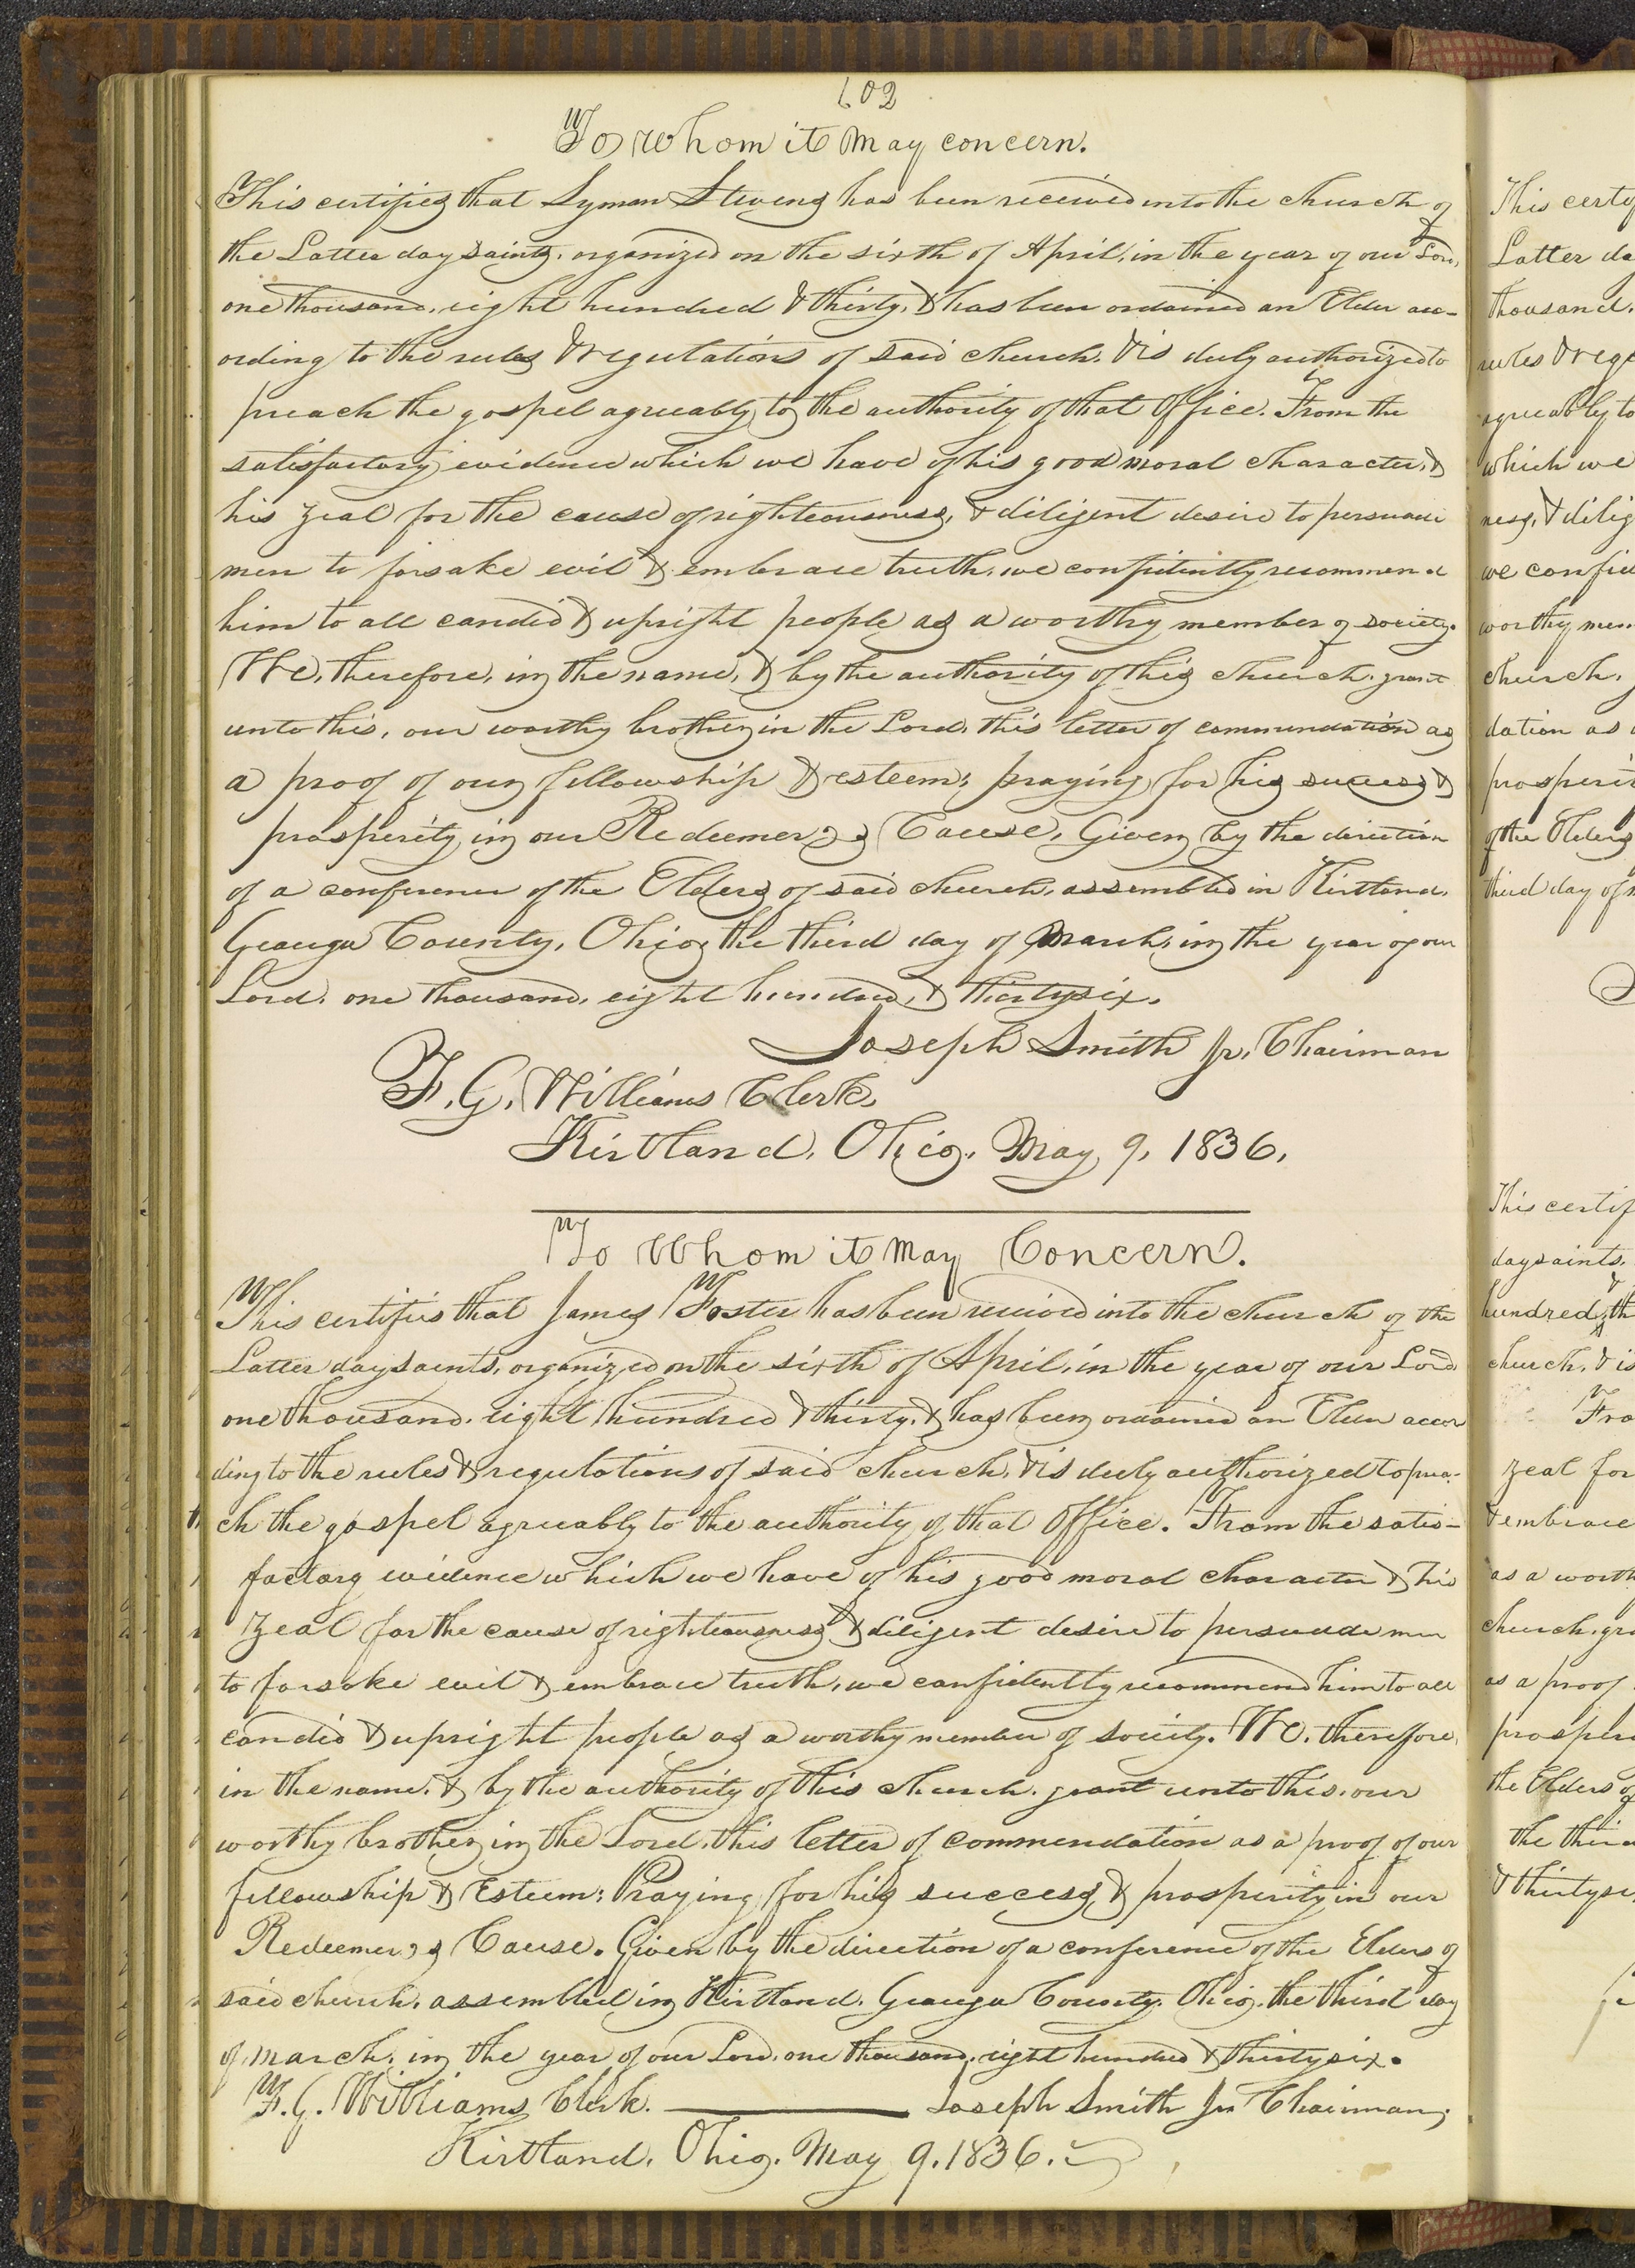 102
To whom it may concern.
This certifies that Lyman Stevens has been received into the church of
the Latter day saints, organized on the sixth of April, in the year of our Lord,
one thousand, eight hundred & thirty, & has been ordained an Elder acc-
ording to the rules & regulations of said church, & is duly authorized to
preach the gospel agreeably to the authority of that Office. From the
satisfactory evidence which we have of his good moral character, &
his zeal for the cause of righteousness, & diligent desire to persuade
men to forsake evil & embrace truth, we confidently recommend
him to all candid & upright people as a worthy member of society.
We, therefore, in the name, & by the authority of this church, grant
unto this, our worthy brother in the Lord, this letter of commendation as
a proof of our fellowship & esteem; praying for his success &
prosperity in our Redeemer's Cause. Given by the direction
of a conference of the Elders of said church, assembled in Kirtland,
Geauga County, Ohio, the third day of March, in the year of our
Lord, one thousand, eight hundred, & thirty six.
Joseph Smith Jr. Chairman
F. G. Williams Clerk.
Kirtland, Ohio, May 9, 1836.
To Whom it may Concern.
This certifies that James Foster has been received into the church of the
Latter day saints, organized on the sixth of April, in the year of our Lord
one thousand, eight hundred & thirty, & has been ordained an Elder accor
ding to the rules & regulations of said church, & is duly authorized to prea-
ch the gospel agreeably to the authority of that Office. From the satis-
factory evidence which we have of his good moral character & his
zeal for the cause of righteousness & diligent desire to persuade men
to forsake evil & embrace truth, we confidently recommend him to all
candid & upright people as a worthy member of society. We, therefore,
in the name, & by the authority of this church, grant unto this, our
worthy brother in the Lord, this letter of commendation as a proof of our
fellowship & Esteem; Praying for his success, & prosperity in our
Redeemer's Cause. Given by the direction of a conference of the Elders of
said church, assembled in Kirtland, Geauga County, Ohio, the third day
of march, in the year of our Lord, one thousand, eight hundred & thirty six.
F. G. Williams Clerk. Joseph Smith Jr Chairman;
Kirtland, Ohio, May 9, 1836.
This certif
Latter da
thousand,
rules & reg
agreeably to
which we
ness, & dilig
we confid
worthy mem
church,
dation as
prosperit
of the Elders
third day of
This certif
day saints,
hundred & th
church, & is
Fro
zeal for
& embrace
as a worth
church, gra
as a proof
prosper
the Elders of
the third
& thirty si